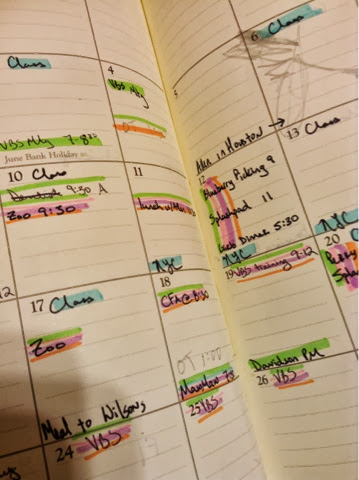 Class
4
VBS Mtg
5
6 Class
VBS Mtg 7-8
June Bank Holiday
10 Class
9:30 A
Zoo 9:30
11
Alex in Houston →
12
Blueberry Picking 9
Splashpad 11
Dinner 5:30
13 Class
12
17 Class
Zoo
NYC
18
CFA @
NYC
19 VBS training 9-12
NYC
20
OT 1:00
Meal to Wilsons
24 VBS
25 VBS
Davidson PM
26 VBS